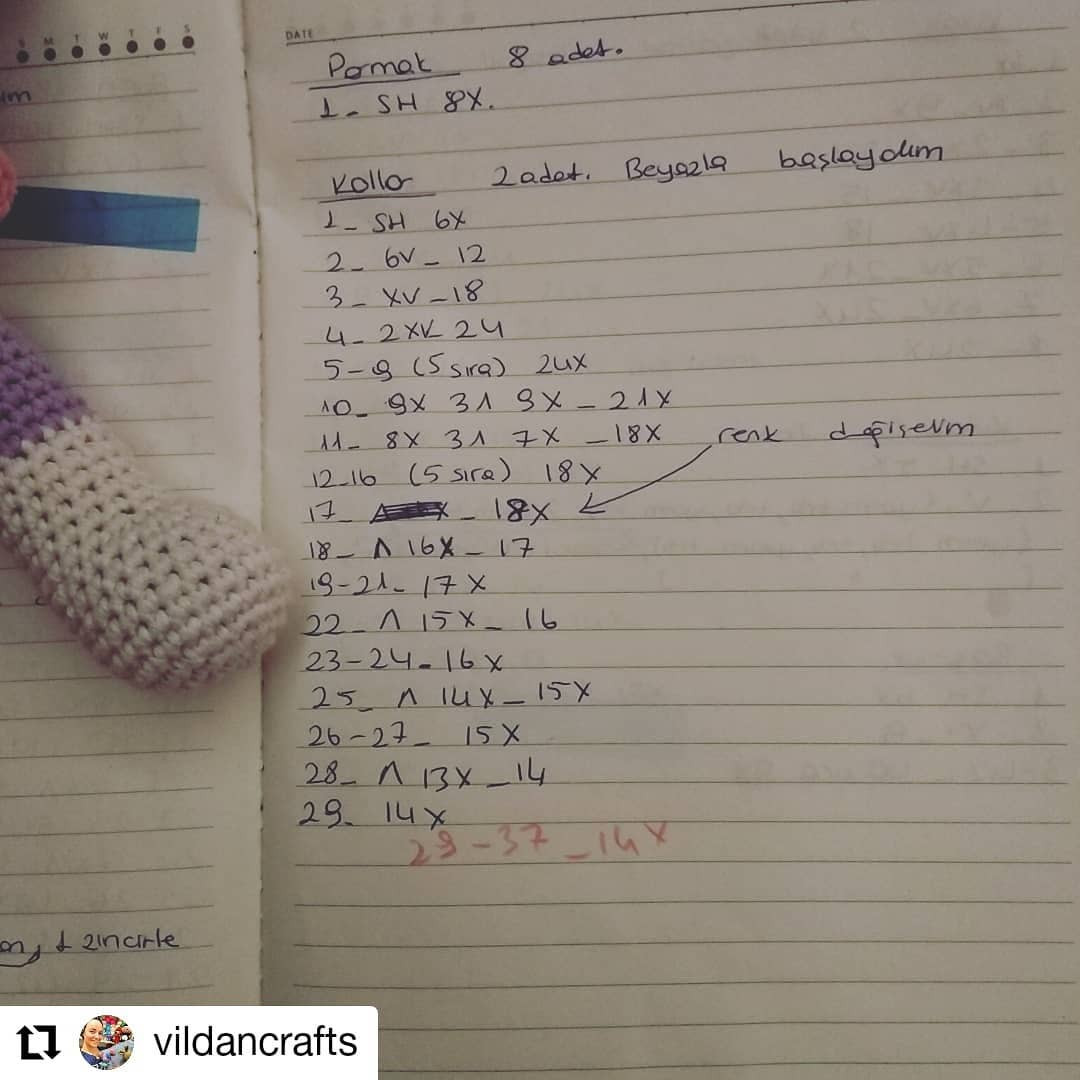 S M T W T F S
DATE
Parmak 8 adet.
1- SH 8X.
Kollar 2 adet. Beyazla başlaydım
1- SH 6X
2- 6V - 12
3- XV - 18
4- 2XV 24
5-9 (5 sıra) 24X
10- 9X 3Λ 9X - 21X
11- 8X 3Λ 7X - 18X renk değişelim
12-16 (5 sıra) 18X
17- - 18X
18- Λ 16X - 17
19-21- 17X
22- Λ 15X - 16
23-24- 16X
25- Λ 14X - 15X
26-27- 15X
28- Λ 13X - 14
29- 14X
29-37 - 14X
1 zincirle
vildancrafts